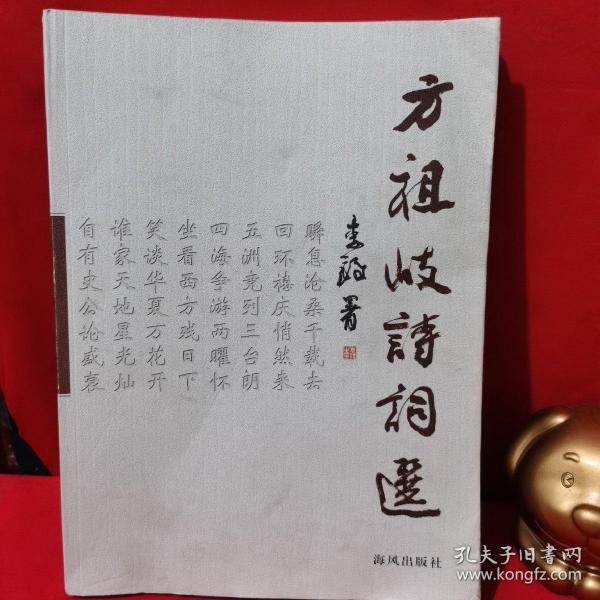 方祖岐詩詞選
李鐸署
瞬息沧桑千载去
回环禧庆悄然来
五洲竞列三台朗
四海争游两曜怀
坐看西方残日下
笑谈华夏万花开
谁家天地星光灿
自有史公论盛衰
海风出版社
孔夫子旧书网
www.kongfz.com